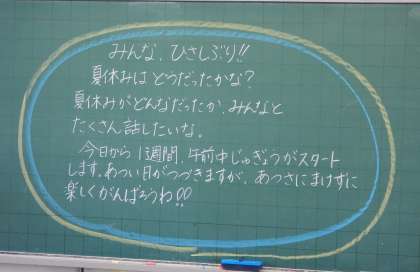 みんな、ひさしぶり!!
夏休みは どうだったかな?
夏休みがどんなだったか、みんなと
たくさん話したいな。
今日から1週間、午前中じゅぎょうがスタート
します。あつい日がつづきますが、あつさにまけずに
楽しくがんばろうね!!